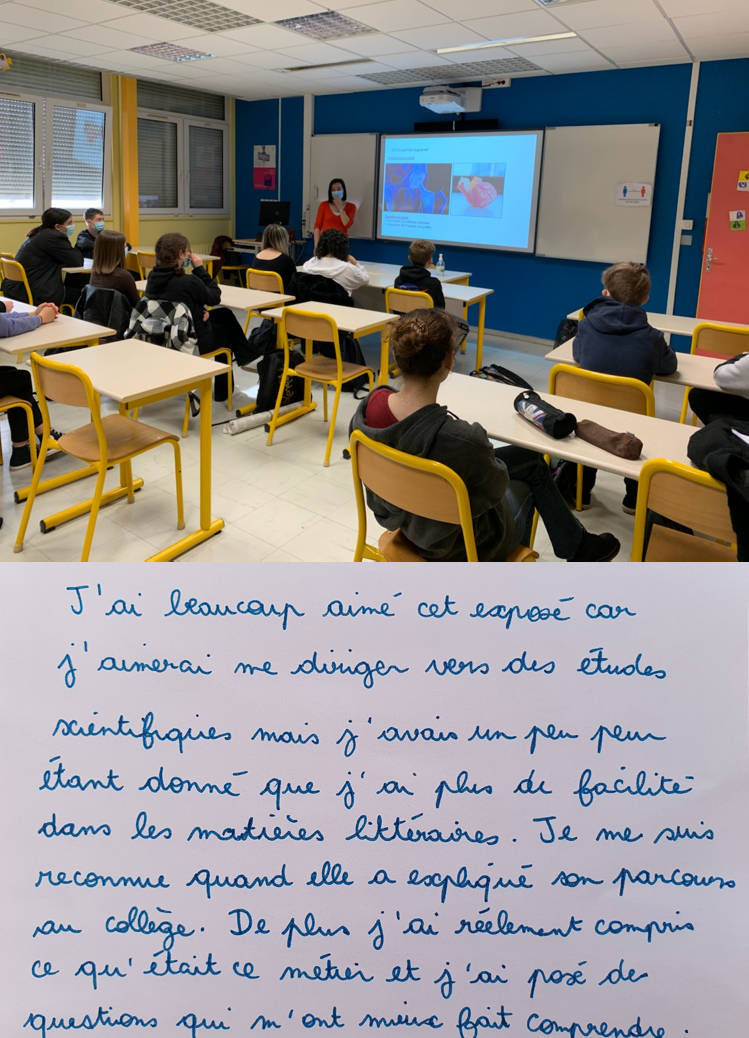 J'ai beaucoup aimé cet exposé car
j'aimerai me diriger vers des études
scientifiques mais j'avais un peu peur
étant donné que j'ai plus de facilité
dans les matières littéraires. Je me suis
reconnue quand elle a expliqué son parcours
au collège. De plus j'ai réelement compris
ce qu'était ce métier et j'ai posé des
questions qui m'ont mieux fait comprendre.